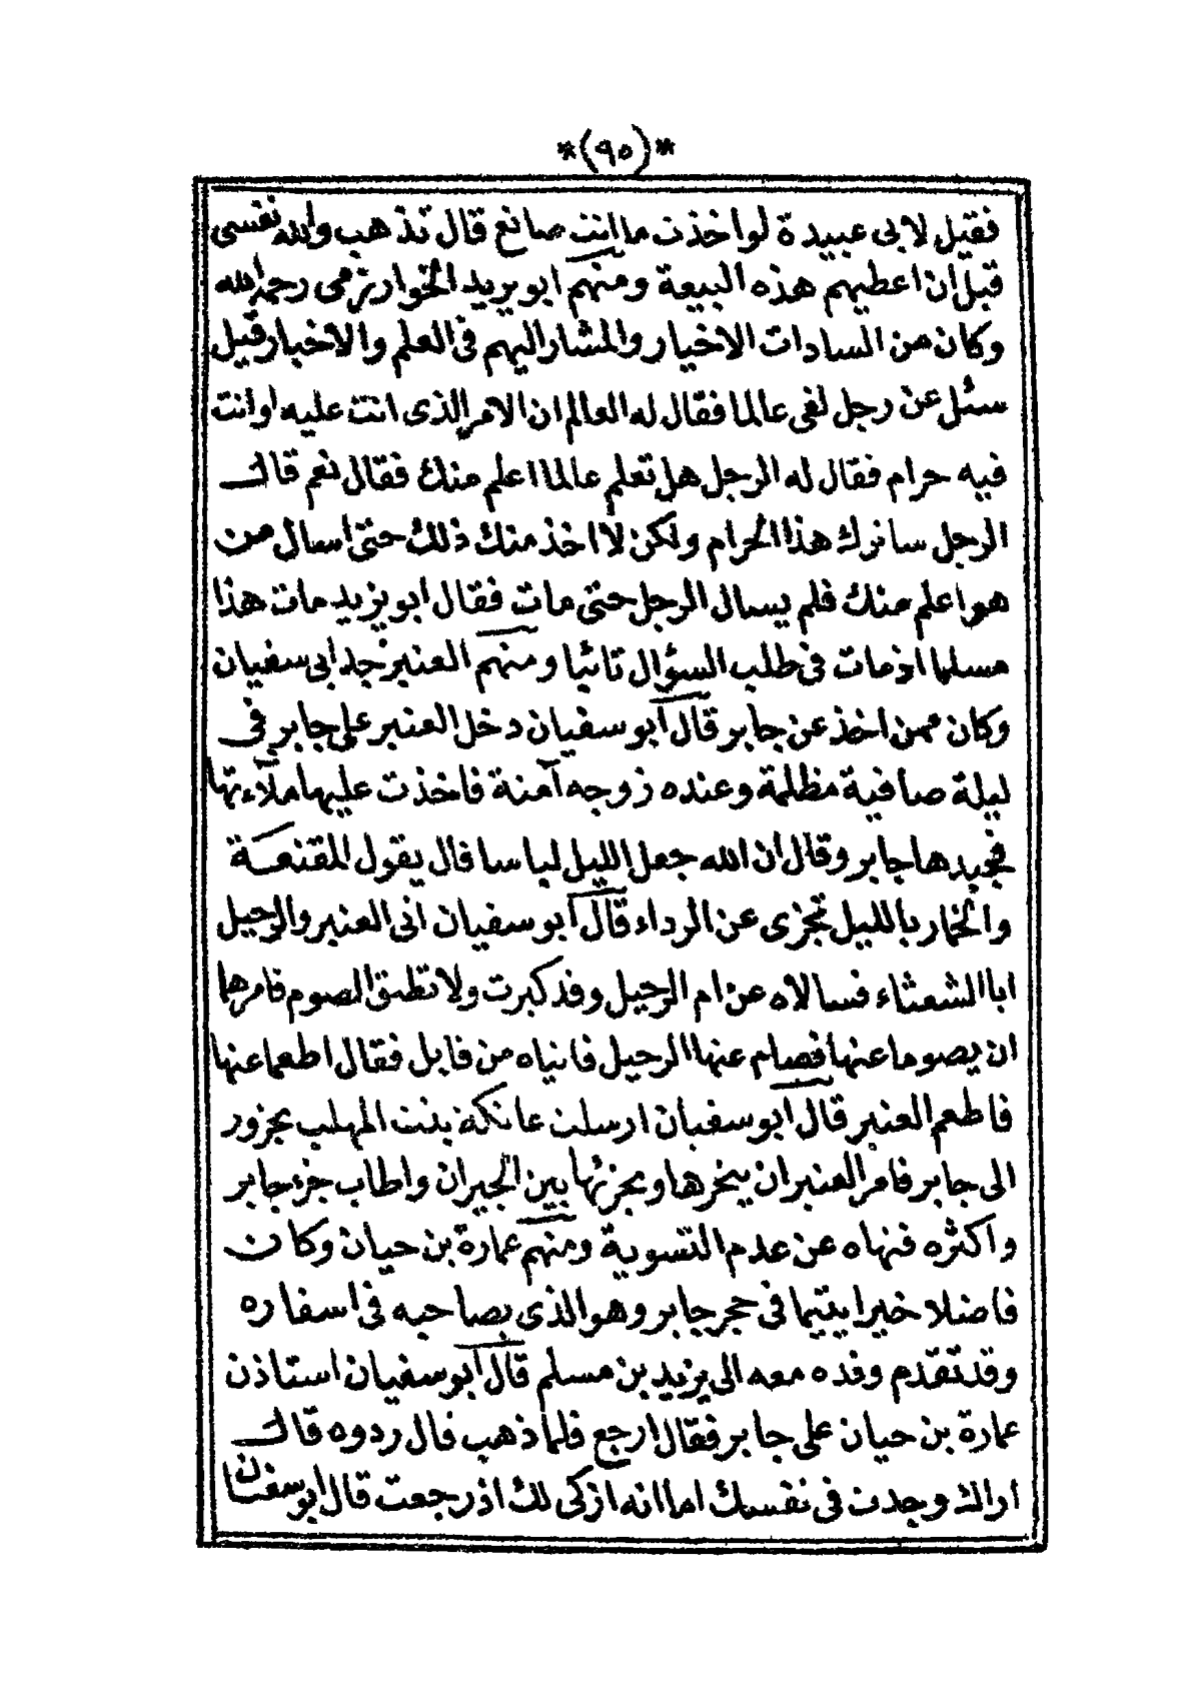 *(٩٥)*
فقيل لابى عبيدة لواخذت ما انت صانع قال تذهب والله نفسى
قبل ان اعطيهم هذه البيعة ومنهم ابو يزيد الخوارزمى رحمه الله
وكان من السادات الاخيار والمشار اليهم فى العلم والاخبار قيل
سئل عن رجل لقى عالما فقال له العالم ان الامر الذى انت عليه او انت
فيه حرام فقال له الرجل هل تعلم عالما اعلم منك فقال نعم قال
الرجل ساترك هذا الحرام ولكن لا اخذ منك ذلك حتى اسال من
هو اعلم منك فلم يسال الرجل حتى مات فقال ابو يزيد مات هذا
مسلما اذ مات فى طلب السؤال تائبا ومنهم العنبر جد ابى سفيان
وكان ممن اخذ عن جابر قال ابو سفيان دخل العنبر على جابر فى
ليلة صافية مظلمة وعنده زوجه آمنة فاخذت عليها ملآءتها
فجبدها جابر وقال ان الله جعل الليل لباسا قال يقول المقنعة
والخمار بالليل تجزى عن الرداء قال ابو سفيان اتى العنبر والرحيل
ابا الشعثاء فسالاه عن ام الرحيل وقد كبرت ولا تطيق الصوم فامرهما
ان يصوما عنها فصام عنها الرحيل فاتياه من قابل فقال اطعما عنها
فاطعم العنبر قال ابو سفيان ارسلت عاتكة بنت المهلب بجزور
الى جابر فامر العنبر ان ينحرها ويجزئها بين الجيران واطاب جزء جابر
واكثره فنهاه عن عدم التسوية ومنهم عمارة بن حيان وكان
فاضلا خيرا يتيما فى حجر جابر وهو الذى يصاحبه فى اسفاره
وقد تقدم وفده معه الى يزيد بن مسلم قال ابو سفيان استاذن
عمارة بن حيان على جابر فقال ارجع فلما ذهب قال ردوه قال
اراك وجدت فى نفسك اما انه ازكى لك اذ رجعت قال ابو سفيان